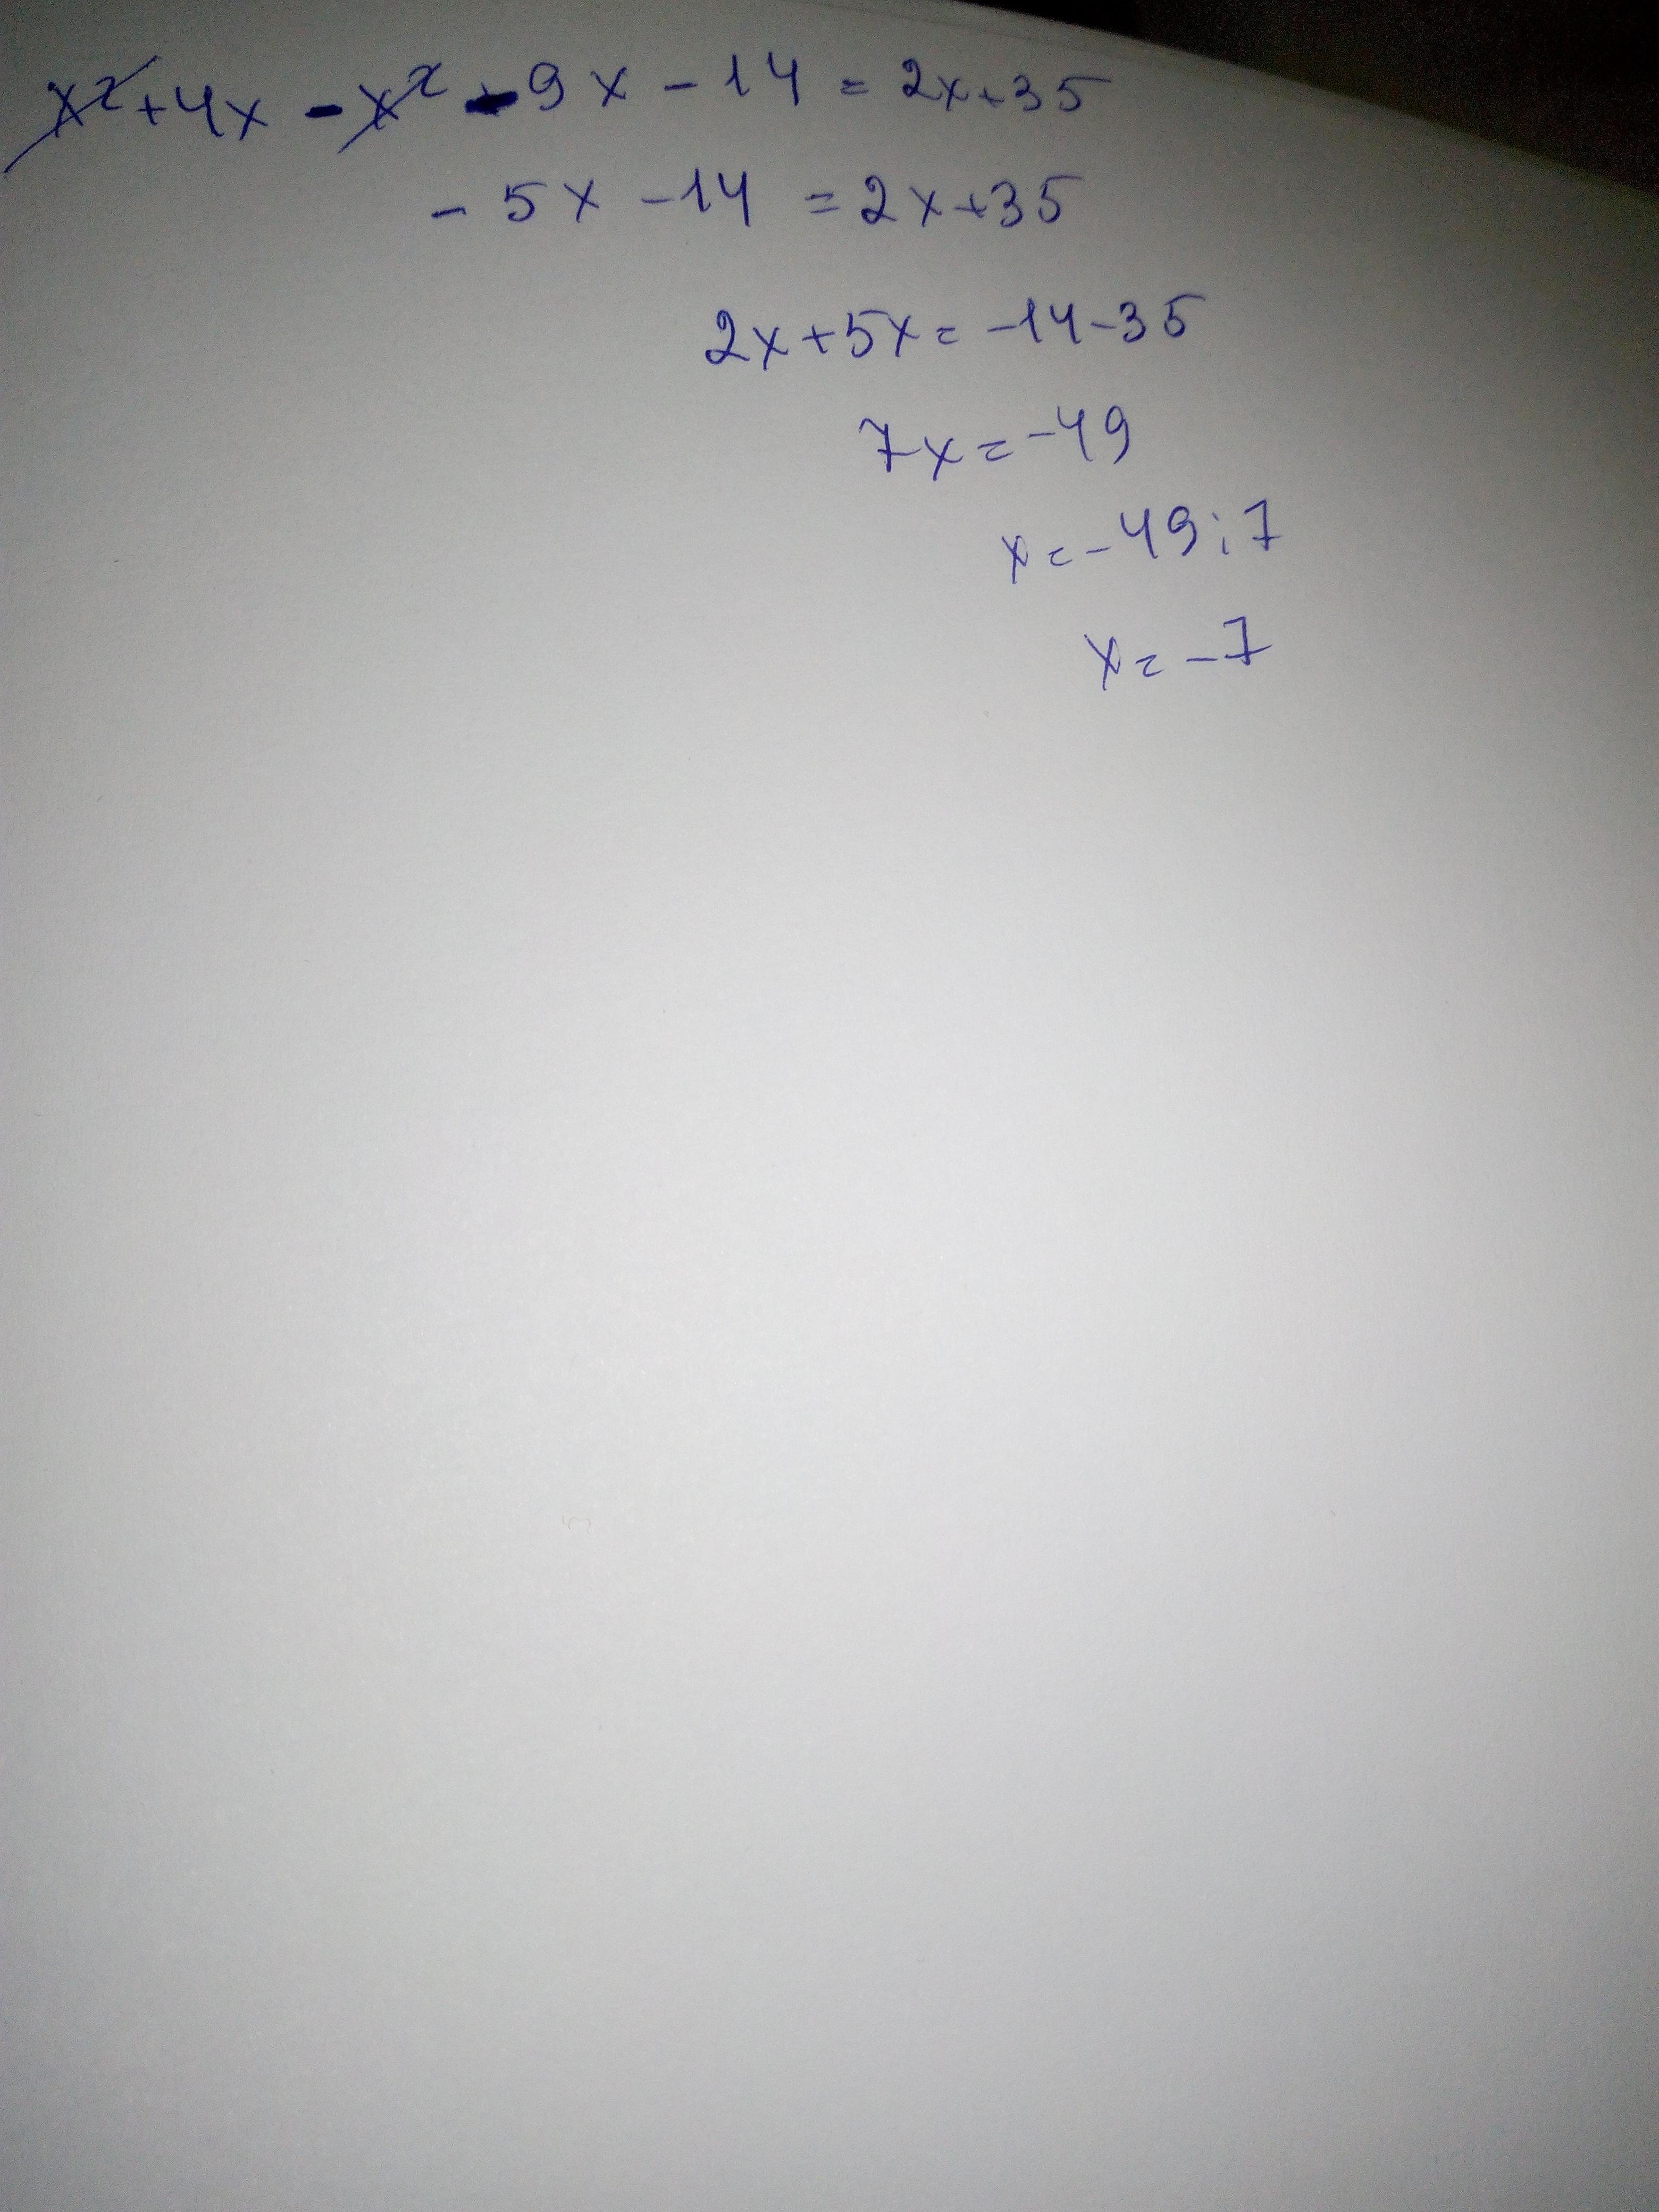 x²+4x - x² - 9x - 14 = 2x+35
- 5x - 14 = 2x+35
2x+5x= -14-35
7x=-49
x=-49:7
x=-7